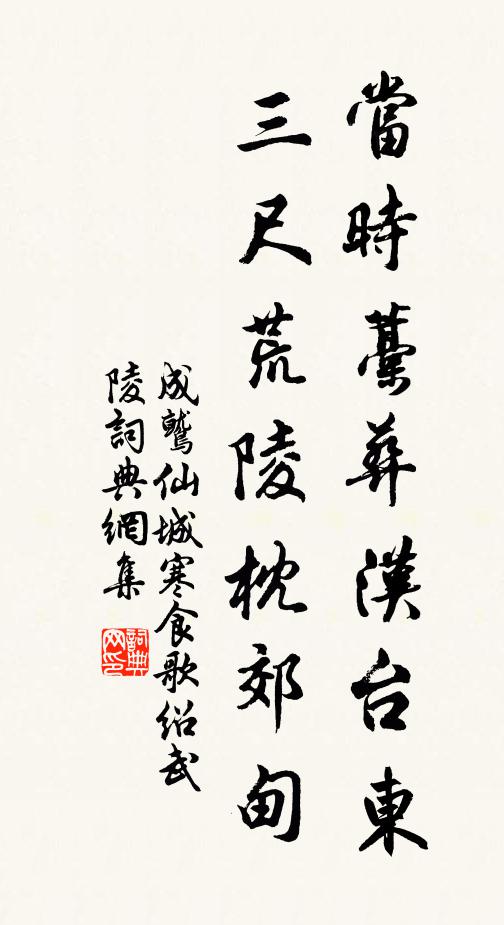 當時藳葬漢台東
三尺荒陵枕郊甸
成鷲仙城寒食歌紹武
陵詞典網集
詞典网印